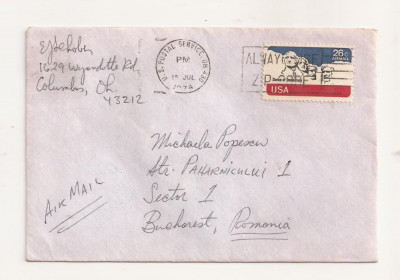 1629 Wyandotte Rd
Columbus, Oh
43212
U.S. POSTAL SERVICE, OH 430
PM
JUL
ALWAYS USE
ZIP CODE
26c
AIRMAIL
USA
Michaela Popescu
Str. PAHARNICULUI 1
Sector 1
Bucharest, Romania
AIR MAIL